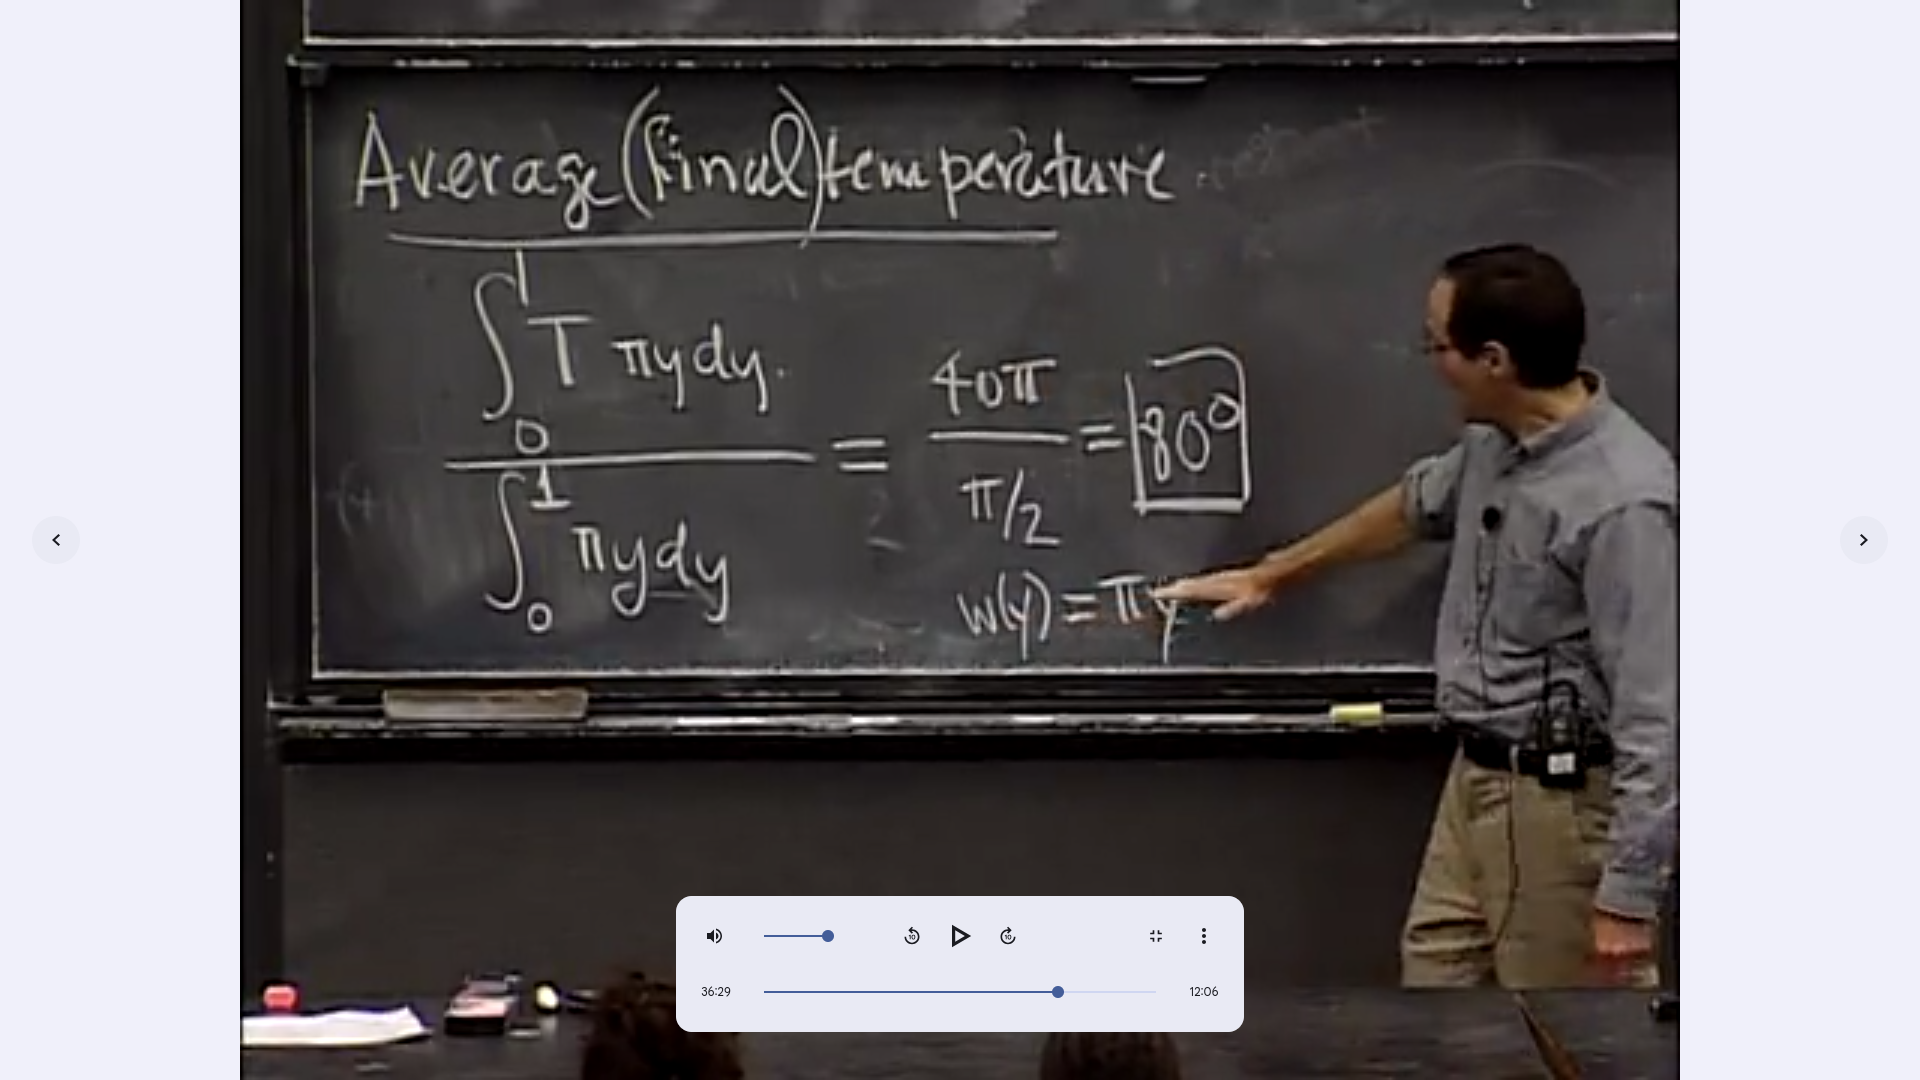 Average (final) temperature
∫₀¹ T πy dy.
∫₀¹ πy dy
= 40π
π/2
= 80°
w(y) = πy
10
10
36:29
12:06